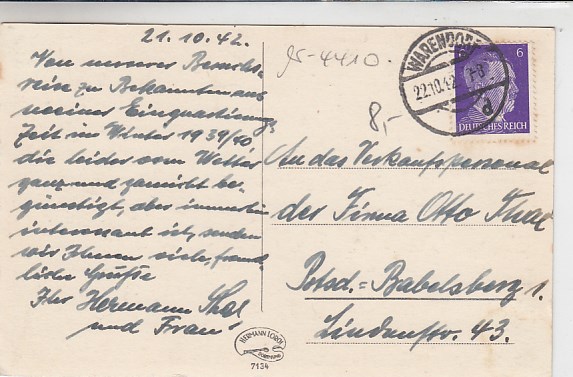 21.10.42.
Von unserer Besuchs-
reise zu Bekannten aus
meiner Einquartierungs
Zeit im Winter 1939/40
die leider vom Wetter
ganz und garnicht be-
günstigt, aber immerhin
interessant ist, senden
wir Ihnen viele, freund-
liche Grüße
Ihr Hermann Thal
und Frau
gr-4410.
8,-
WARENDORF
22.10.42
d
6
DEUTSCHES REICH
An das Verkaufspersonal
der Firma Otto
Potsd.=Babelsberg 1.
Lindenstr. 43.
HERMANN LORCH
DORTMUND
7134